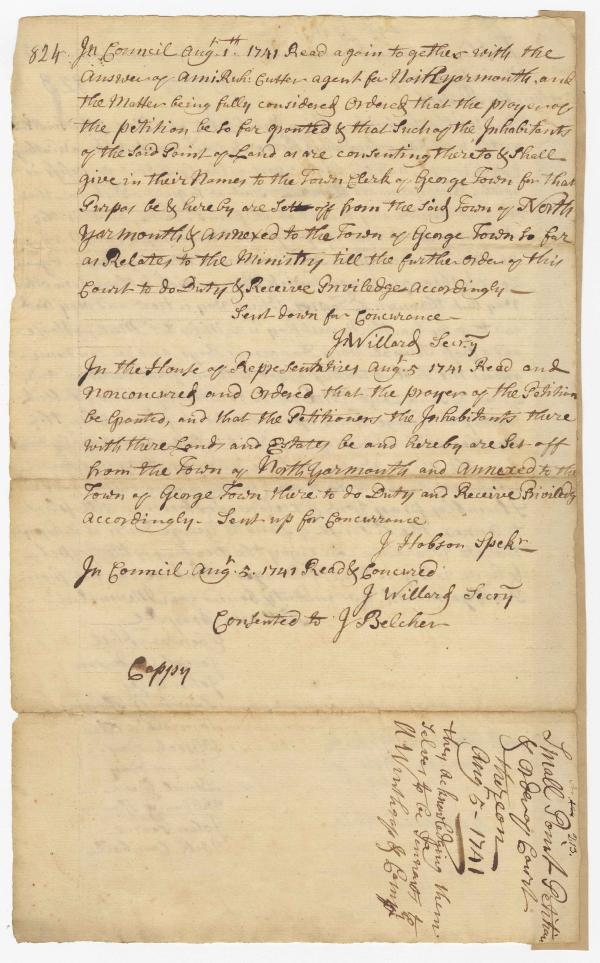 824. In Council Augt. 1th 1741 Read again together with the
Answer of Ami Ruh: Cutter agent for North yarmouth and
the Matter being fully considered Ordered that the prayer of
the petition be so far granted & that Such of the Inhabitants
of the Said Point of Land as are consenting thereto & Shall
give in their Names to the Town Clerk of George Town for that
Purpas be & hereby are Sett off from the Said Town of North
Yarmouth & Annexed to the Town of George Town So far
as Relates to the Ministry till the further order of this
Court to do Duty & Receive Priviledge Accordingly —
Sent down for Concurance
J Willard Secry
In the House of Representatives Augt. 5 1741 Read and
Nonconcured and Ordered that the prayer of the Petition
be Granted, and that the Petitioners the Inhabitants there
with there Lands and Estates be and hereby are Set off
from the Town of North Yarmouth and Annexed to the
Town of George Town there to do Duty and Receive Priviledg
Accordingly - Sent up for Concurrance
J Hobson Spekr
In Council Augt. 5. 1741 Read & Concured
J Willard Secry
Consented to J Belcher
Coppy
213.
Small Point Petition
& Order of Court
thereon
Augt 5 - 1741
they acknowledging them
selves to be Tennants to
A Winthrop & Comp